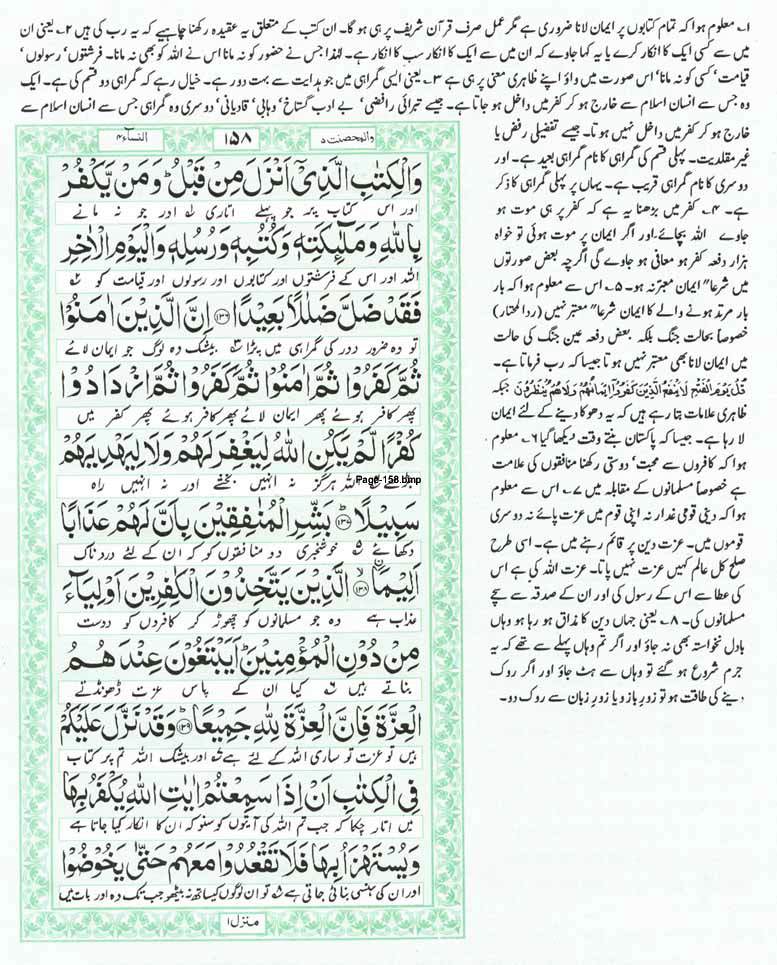 ۱۔ معلوم ہوا کہ تمام کتابوں پر ایمان لانا ضروری ہے مگر عمل صرف قرآن شریف پر ہی ہو گا۔ ان کتب کے متعلق یہ عقیدہ رکھنا چاہیے کہ یہ رب کی ہیں ۲۔ یعنی ان
میں سے کسی ایک کا انکار کرے یا یہ کہا جاوے کہ ان میں سے ایک کا انکار سب کا انکار ہے۔ لہٰذا جس نے حضور کو نہ مانا اس نے اللہ کو بھی نہ مانا۔ فرشتوں' رسولوں'
قیامت' کسی کو نہ مانا' اس صورت میں واؤ اپنے ظاہری معنی پر ہی ہے ۳۔ یعنی ایسی گمراہی میں جو ہدایت سے بہت دور ہے۔ خیال رہے کہ گمراہی دو قسم کی ہے۔ ایک
وہ جس سے انسان اسلام سے خارج ہو کر کفر میں داخل ہو جاتا ہے۔ جیسے تبرائی رافضی' بے ادب گستاخ' وہابی' قادیانی' دوسری وہ گمراہی جس سے انسان اسلام سے
خارج ہو کر کفر میں داخل نہیں ہوتا۔ جیسے تفضیلی رفض یا
غیر مقلدیت۔ پہلی قسم کی گمراہی کا نام گمراہی بعید ہے۔ اور
دوسری کا نام گمراہی قریب ہے۔ یہاں پر پہلی گمراہی کا ذکر
ہے۔ ۴۔ کفر میں بڑھنا یہ ہے کہ کفر ہی پر موت ہو
جاوے اللہ بچائے۔ اور اگر ایمان پر موت ہوئی تو خواہ
ہزار دفعہ کفر ہو معافی ہو جاوے گی اگرچہ بعض صورتوں
میں شرعا" ایمان معتبر نہ ہو۔ ۵۔ اس سے معلوم ہوا کہ بار
بار مرتد ہونے والے کا ایمان شرعا" معتبر نہیں (ردالمختار)
خصوصاً بحالت جنگ بلکہ بعض دفعہ عین جنگ کی حالت
میں ایمان لانا بھی معتبر نہیں ہوتا جیسا کہ رب فرماتا ہے۔
قُلْ يَوْمَ الْفَتْحِ لَا يَنْفَعُ الَّذِيْنَ كَفَرُوْا اِيْمَانُهُمْ وَلَا هُمْ يُنْظَرُوْنَ جبکہ
ظاہری علامات بتا رہے ہیں کہ یہ دھوکا دینے کے لئے ایمان
لا رہا ہے۔ جیسا کہ پاکستان بنتے وقت دیکھا گیا ۶۔ معلوم
ہوا کہ کافروں سے محبت' دوستی رکھنا منافقوں کی علامت
ہے خصوصاً مسلمانوں کے مقابلہ میں ۷۔ اس سے معلوم
ہوا کہ دینی قومی غدار نہ اپنی قوم میں عزت پائے نہ دوسری
قوموں میں۔ عزت دین پر قائم رہنے میں ہے۔ اسی طرح
صلح کل عالم کہیں عزت نہیں پاتا۔ عزت اللہ کی ہے اس
کی عطا سے اس کے رسول کی اور ان کے صدقہ سے سچے
مسلمانوں کی۔ ۸۔ یعنی جہاں دین کا مذاق ہو رہا ہو وہاں
بادل نخواستہ بھی نہ جاؤ اور اگر تم وہاں پہلے سے تھے کہ یہ
جرم شروع ہو گئے تو وہاں سے ہٹ جاؤ اور اگر روک
دینے کی طاقت ہو تو زورِ بازو یا زورِ زبان سے روک دو۔
والمحصنت ۵ ۱۵۸ النساء ۴
وَالْكِتٰبِ الَّذِيْٓ اَنْزَلَ مِنْ قَبْلُ ؕ وَمَنْ يَّكْفُرْ
اور اس کتاب پر جو پہلے اتاری اور جو نہ مانے
بِاللّٰهِ وَمَلٰٓئِكَتِهٖ وَكُتُبِهٖ وَرُسُلِهٖ وَالْيَوْمِ الْاٰخِرِ
اللہ اور اس کے فرشتوں اور کتابوں اور رسولوں اور قیامت کو
فَقَدْ ضَلَّ ضَلٰلًاۢ بَعِيْدًا ۝۱۳۶ اِنَّ الَّذِيْنَ اٰمَنُوْا
تو وہ ضرور دور کی گمراہی میں پڑا بیشک وہ لوگ جو ایمان لائے
ثُمَّ كَفَرُوْا ثُمَّ اٰمَنُوْا ثُمَّ كَفَرُوْا ثُمَّ ازْدَادُوْا
پھر کافر ہوئے پھر ایمان لائے پھر کافر ہوئے پھر کفر میں
كُفْرًا لَّمْ يَكُنِ اللّٰهُ لِيَغْفِرَ لَهُمْ وَلَا لِيَهْدِيَهُمْ
اللہ ہرگز نہ انہیں بخشے اور نہ انہیں راہ
Page-158.bmp
سَبِيْلًا ۝۱۳۷ بَشِّرِ الْمُنٰفِقِيْنَ بِاَنَّ لَهُمْ عَذَابًا
دکھائے خوشخبری دو منافقوں کو کہ ان کے لئے دردناک
اَلِيْمًا ۝۱۳۸ الَّذِيْنَ يَتَّخِذُوْنَ الْكٰفِرِيْنَ اَوْلِيَآءَ
عذاب ہے وہ جو مسلمانوں کو چھوڑ کر کافروں کو دوست
مِنْ دُوْنِ الْمُؤْمِنِيْنَ ؕ اَيَبْتَغُوْنَ عِنْدَهُمُ
بناتے ہیں کیا ان کے پاس عزت ڈھونڈتے
الْعِزَّةَ فَاِنَّ الْعِزَّةَ لِلّٰهِ جَمِيْعًا ۝۱۳۹ وَقَدْ نَزَّلَ عَلَيْكُمْ
ہیں تو عزت تو ساری اللہ کے لئے ہے اور بیشک اللہ تم پر کتاب
فِي الْكِتٰبِ اَنْ اِذَا سَمِعْتُمْ اٰيٰتِ اللّٰهِ يُكْفَرُ بِهَا
میں اتار چکا کہ جب تم اللہ کی آیتوں کو سنو کہ ان کا انکار کیا جاتا ہے
وَيُسْتَهْزَاُ بِهَا فَلَا تَقْعُدُوْا مَعَهُمْ حَتّٰى يَخُوْضُوْا
اور ان کی ہنسی بنائی جاتی ہے تو ان لوگوں کیساتھ نہ بیٹھو جب تک وہ اور بات میں
منزل ۱